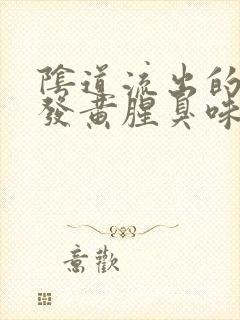 陰道流出的
發黃腥臭味
意歡